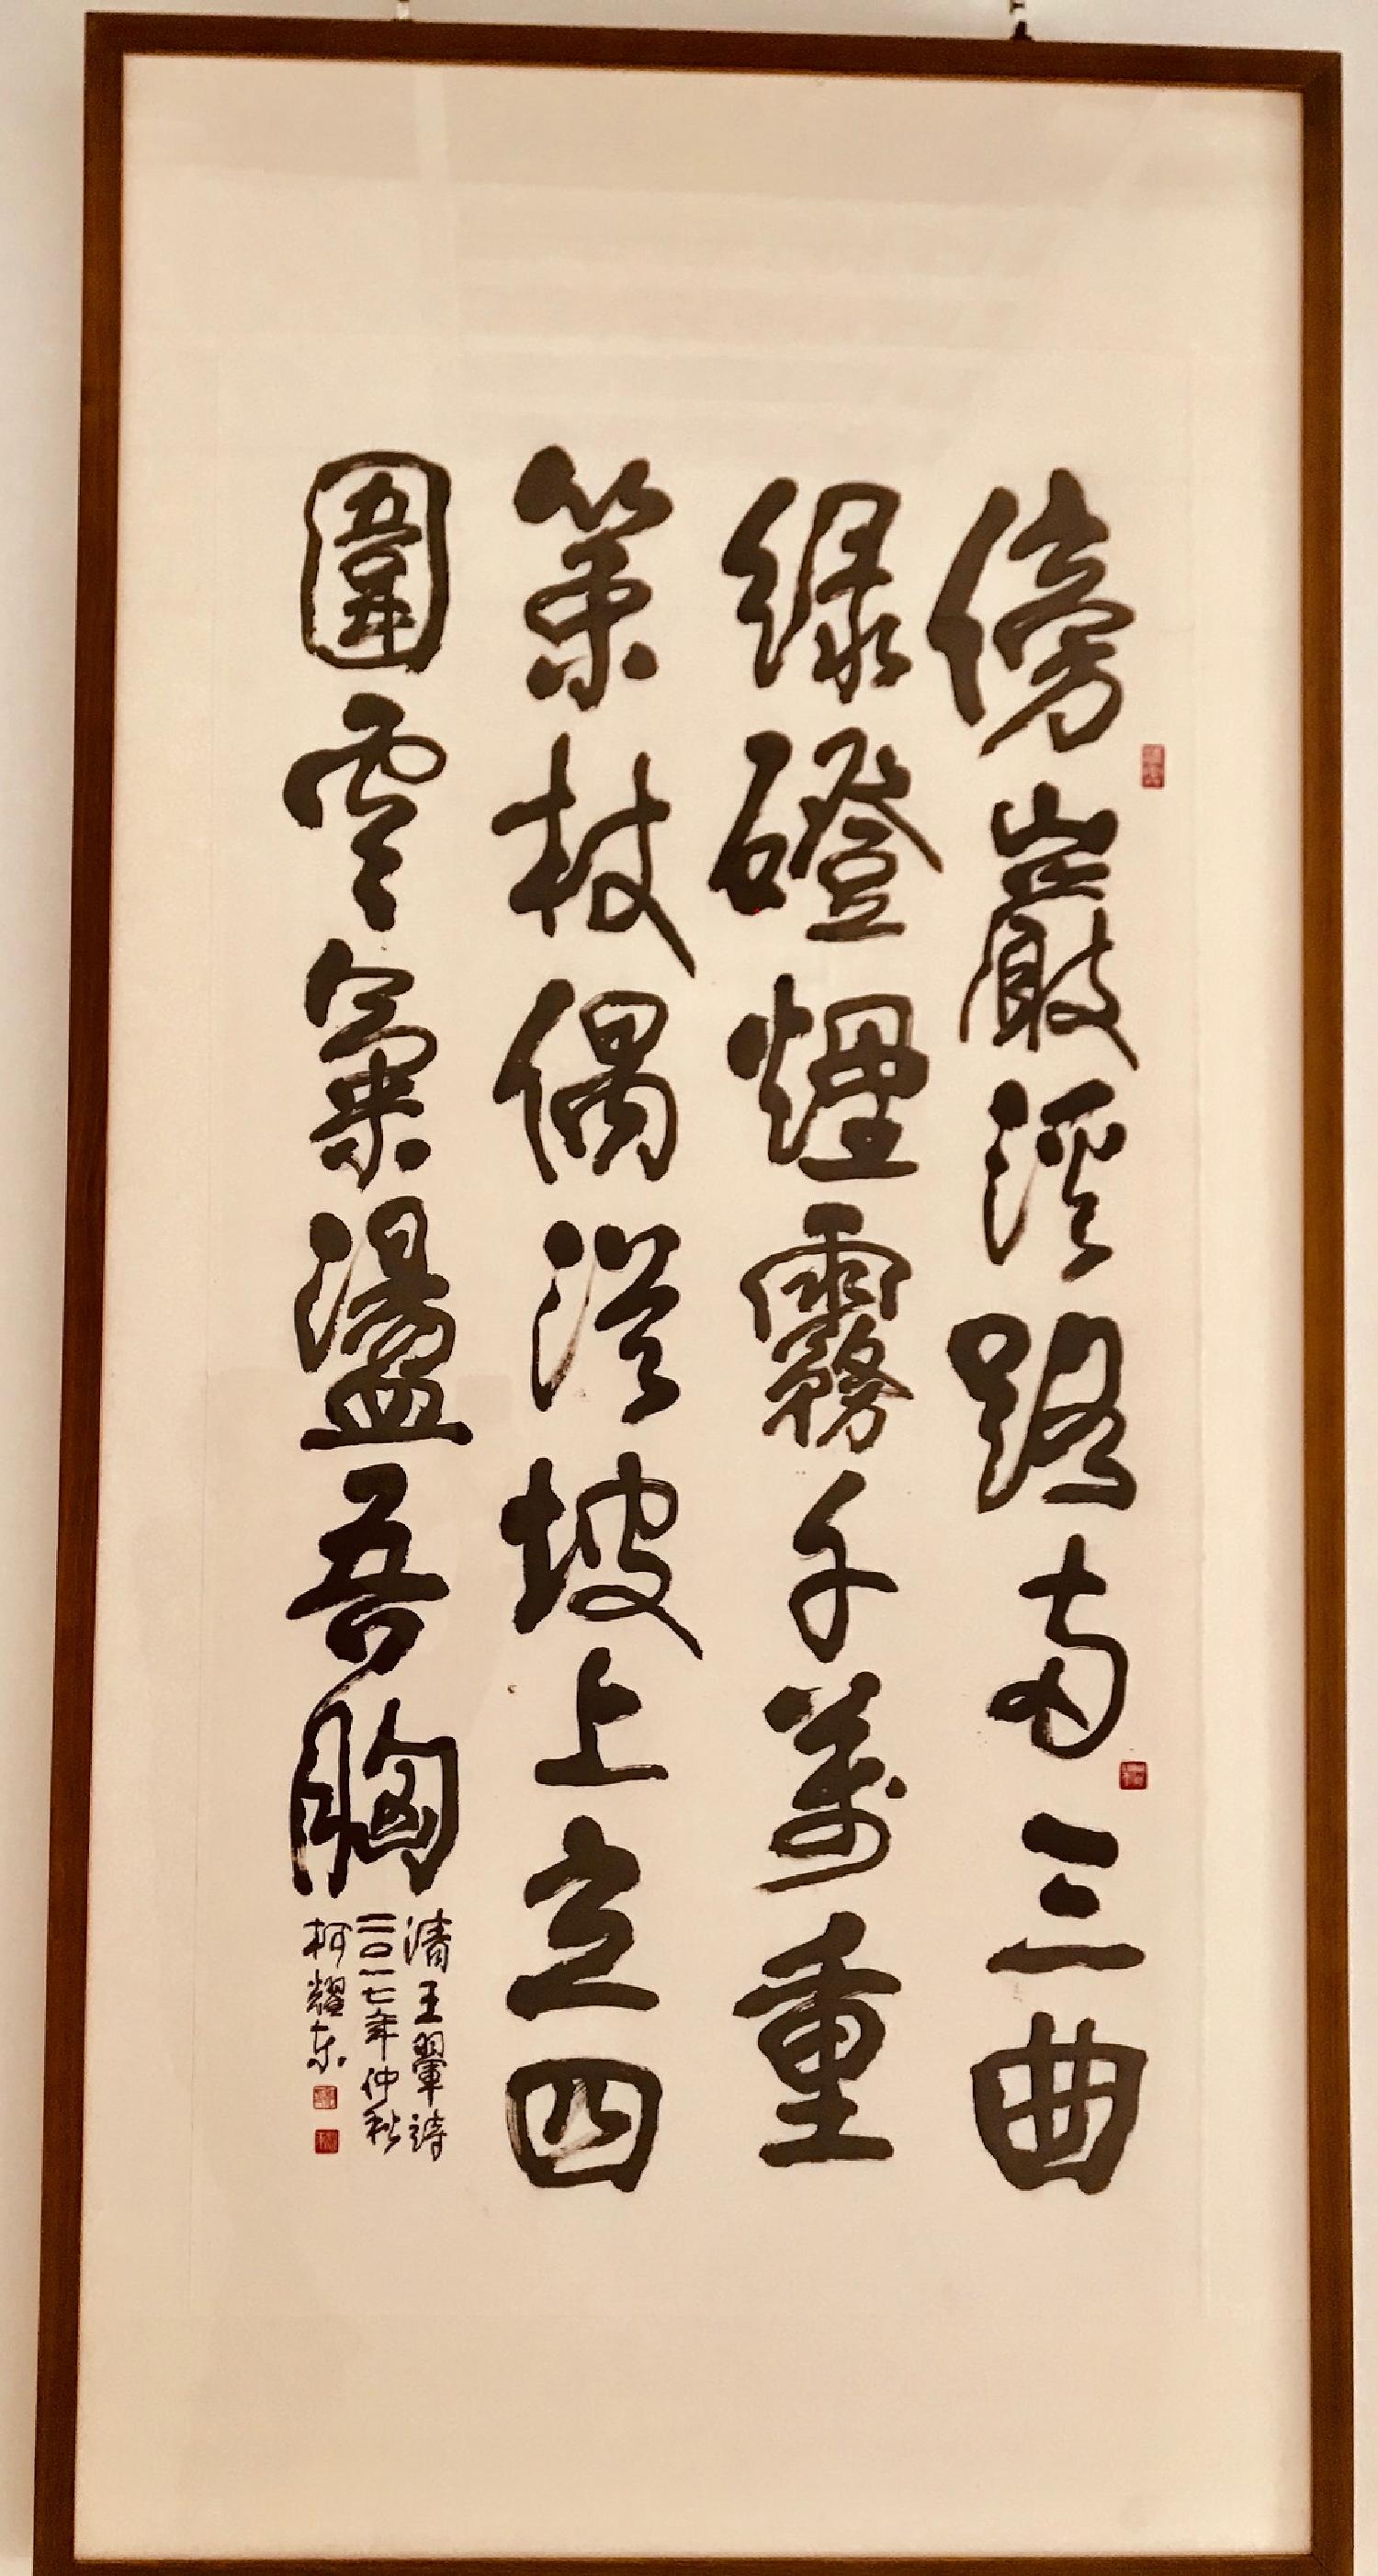 傍巖溪路兩三曲
綠磴煙霧千萬重
策杖偶從坡上立四
圍雲氣盪吾胸
清王翬詩
二〇一七年仲秋
柯耀东